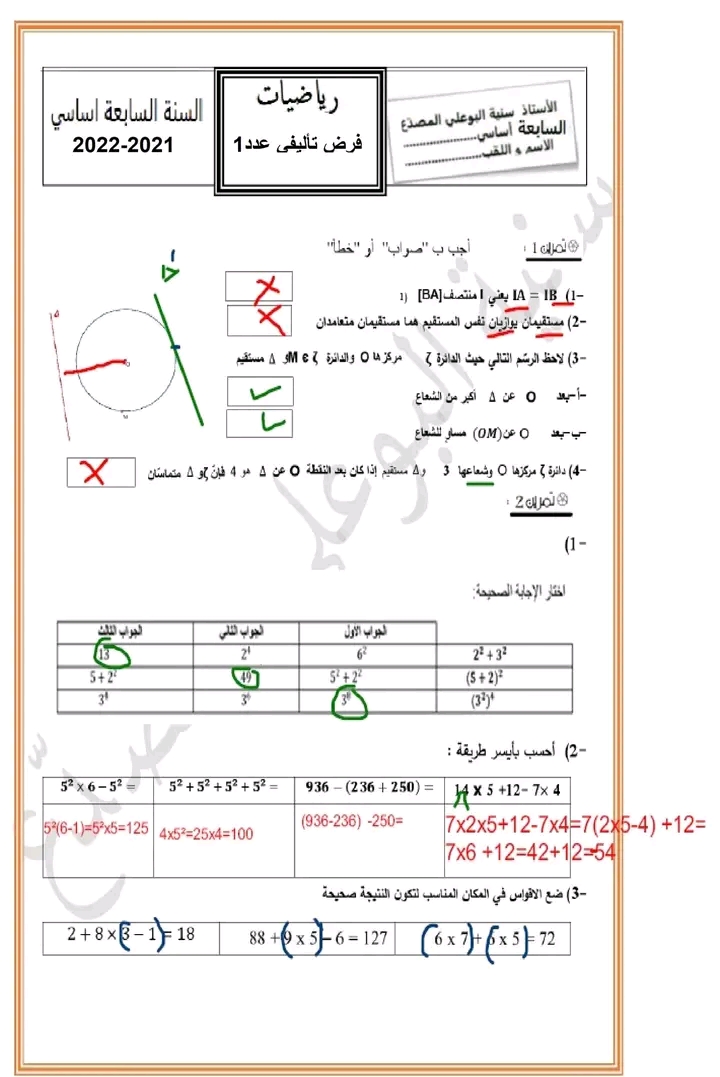 السنة السابعة اساسي
2022-2021
رياضيات
فرض تأليفي عدد1
الأستاذ سنية البوعلي المصدّع
السابعة أساسي....................
الاسم و اللقب....................
تمرين 1 :
أجب ب "صواب" أو "خطأ"
1- (IA = IB يعني I منتصف[BA] (1
2- (مستقيمان يوازيان نفس المستقيم هما مستقيمان متعامدان
3- (لاحظ الرسم التالي حيث الدائرة ζ مركزها O والدائرة M ϵ ζ و Δ مستقيم
أ-بعد O عن Δ أكبر من الشعاع
ب-بعد O عن (OM) مساو للشعاع
4- (دائرة ζ مركزها O وشعاعها 3 و Δ مستقيم إذا كان بعد النقطة O عن Δ هو 4 فإنّ ζ و Δ متماسّان
Δ'
Δ
O
M
تمرين 2 :
1- (
اختار الإجابة الصحيحة:
الجواب الأول الجواب الثاني الجواب الثالث
2² + 3² 6² 2⁴ 13
(5 + 2)² 5² + 2² 49 5 + 2²
(3²)⁴ 3⁸ 3⁶ 3⁴
2- (أحسب بأيسر طريقة :
5² × 6 – 5² = 5² + 5² + 5² + 5² = 936 – (236 + 250) = 14 x 5 +12– 7× 4
5²(6-1)=5²x5=125 4x5²=25x4=100 (936-236) -250= 7x2x5+12-7x4=7(2x5-4) +12=
7x6 +12=42+12=54
3- (ضع الاقواس في المكان المناسب لتكون النتيجة صحيحة
2 + 8 × (3 − 1) = 18 88 + (9 x 5) – 6 = 127 (6 x 7) + (6 x 5) = 72
سنية البوعلي المصدّع